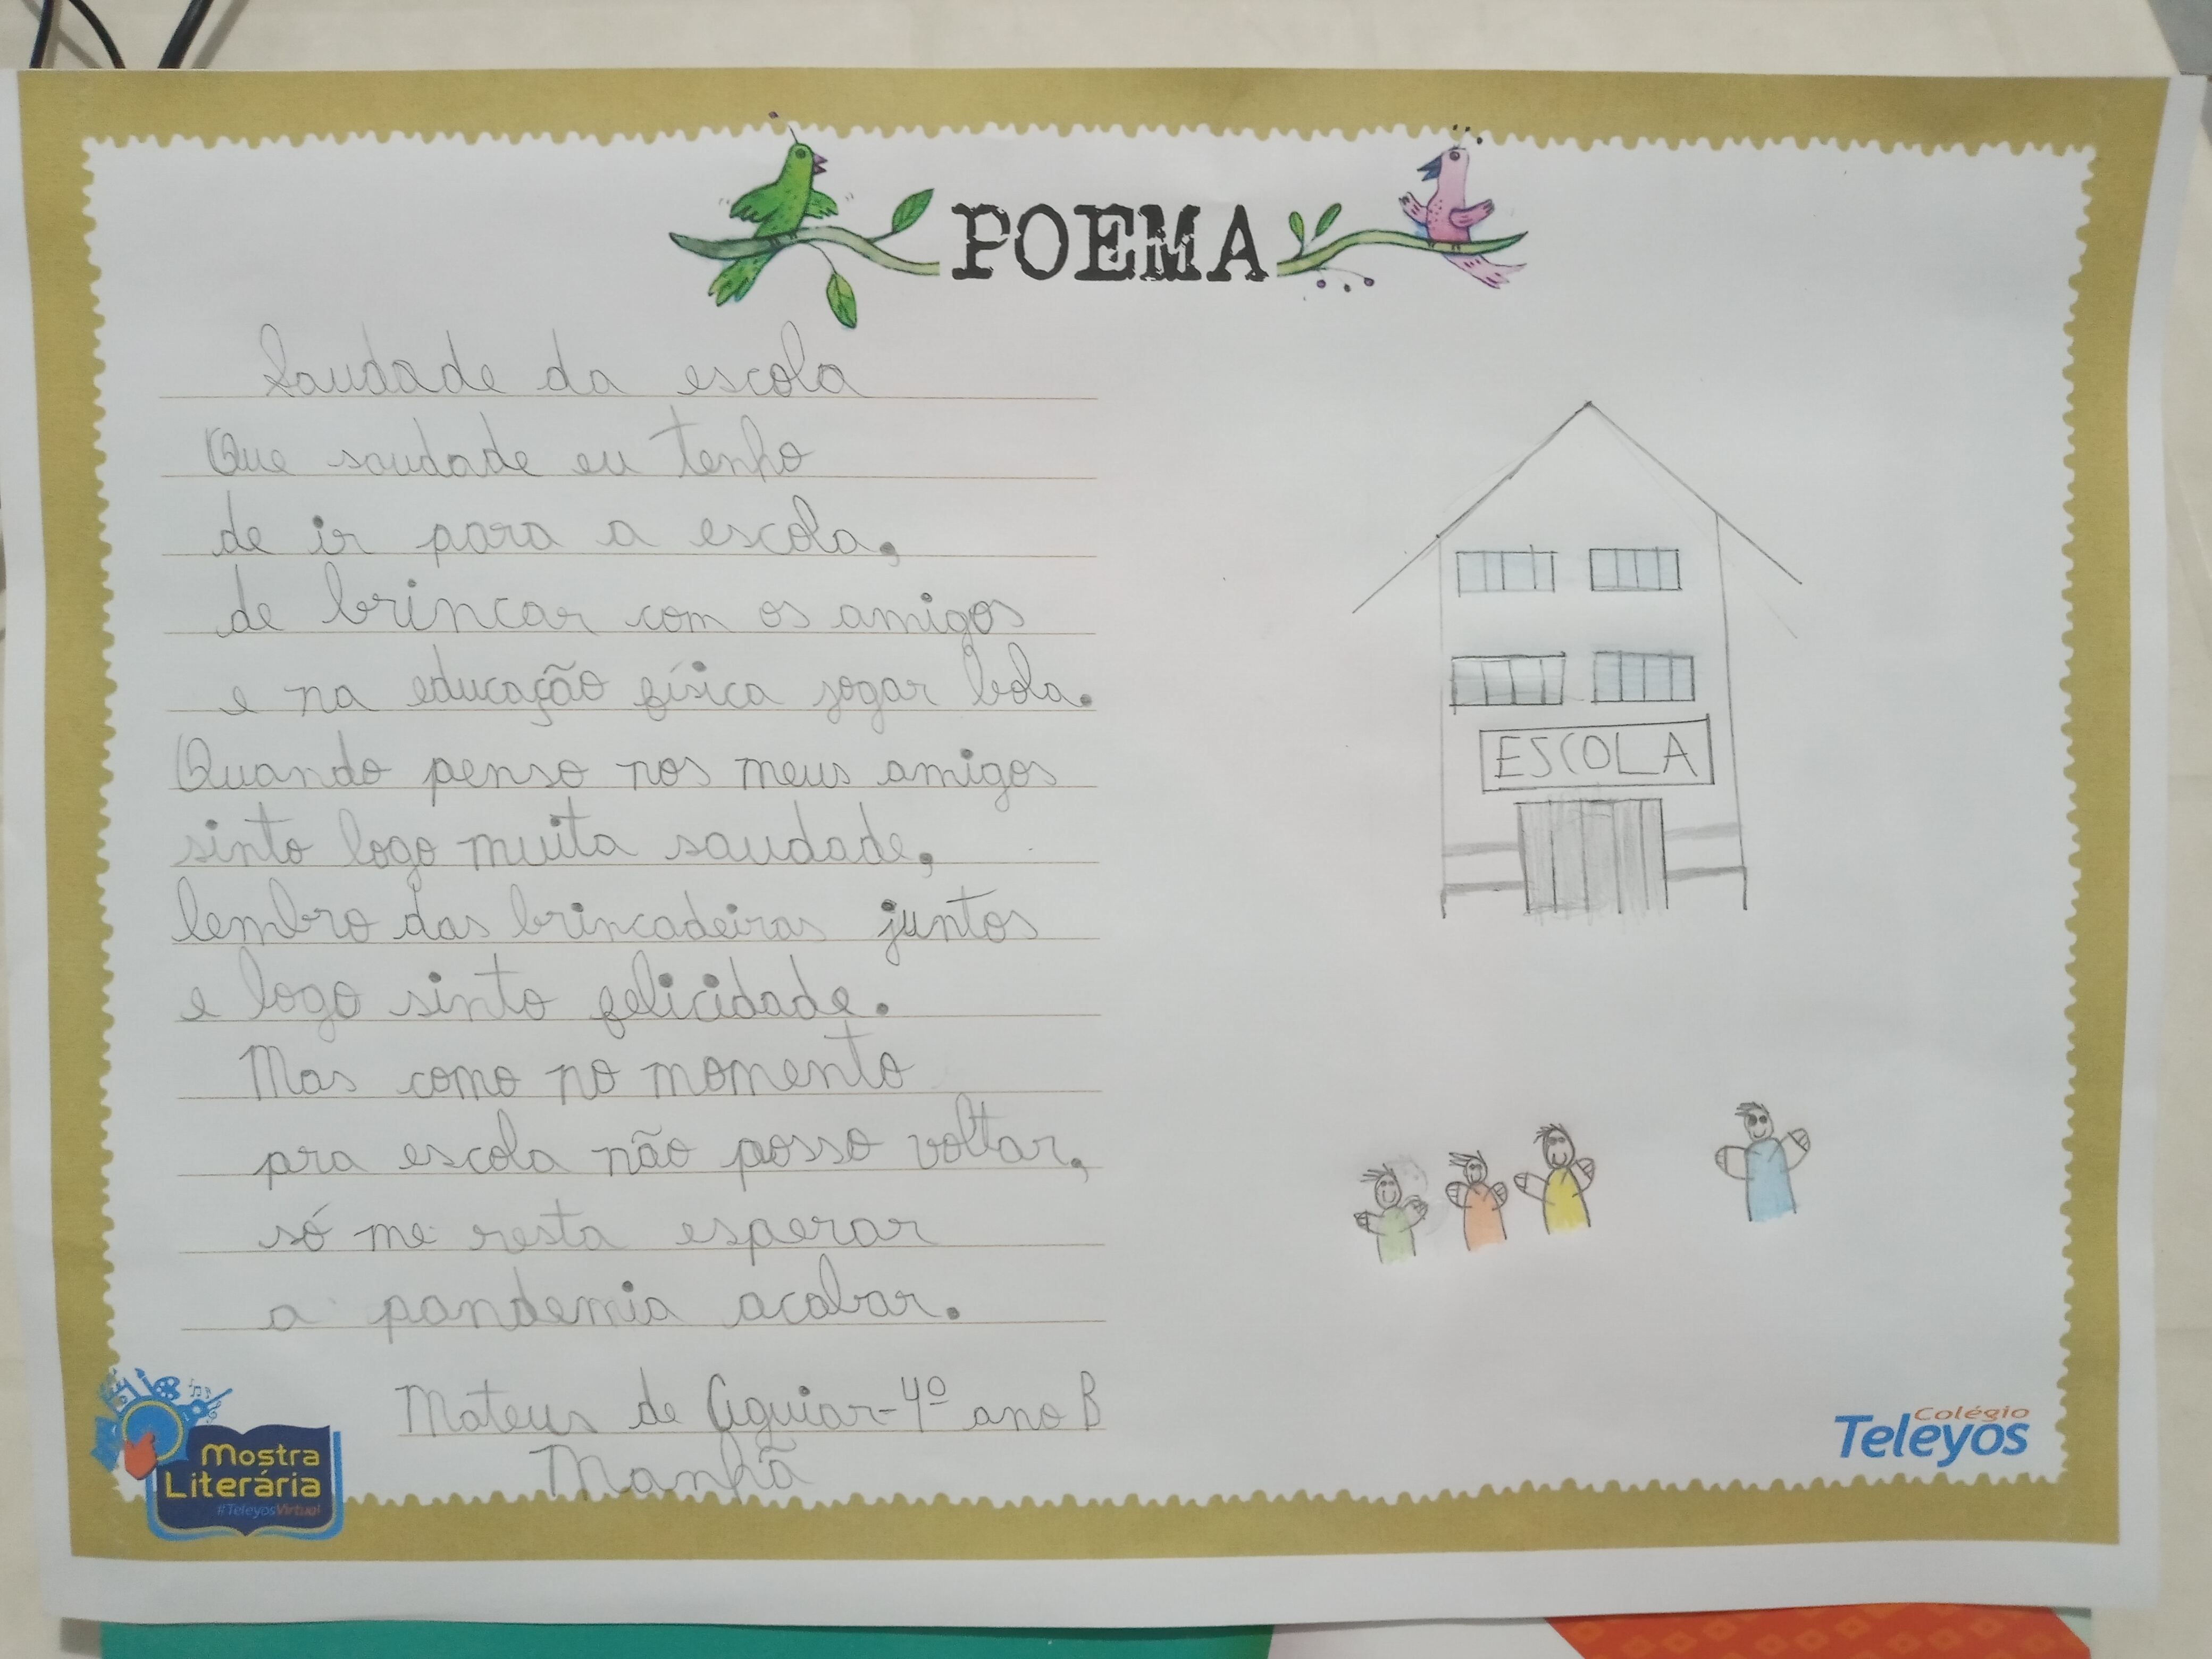 POEMA
Saudade da escola
Que saudade eu tenho
de ir para a escola,
de brincar com os amigos
e na educação física jogar bola.
Quando penso nos meus amigos
sinto logo muita saudade,
lembro das brincadeiras juntos
e logo sinto felicidade.
Mas como no momento
pra escola não posso voltar,
só me resta esperar
a pandemia acabar.
Mateus de Aguiar-4º ano B
Manhã
ESCOLA
Mostra
Literária
#TeleyosVirtual
Colégio
Teleyos